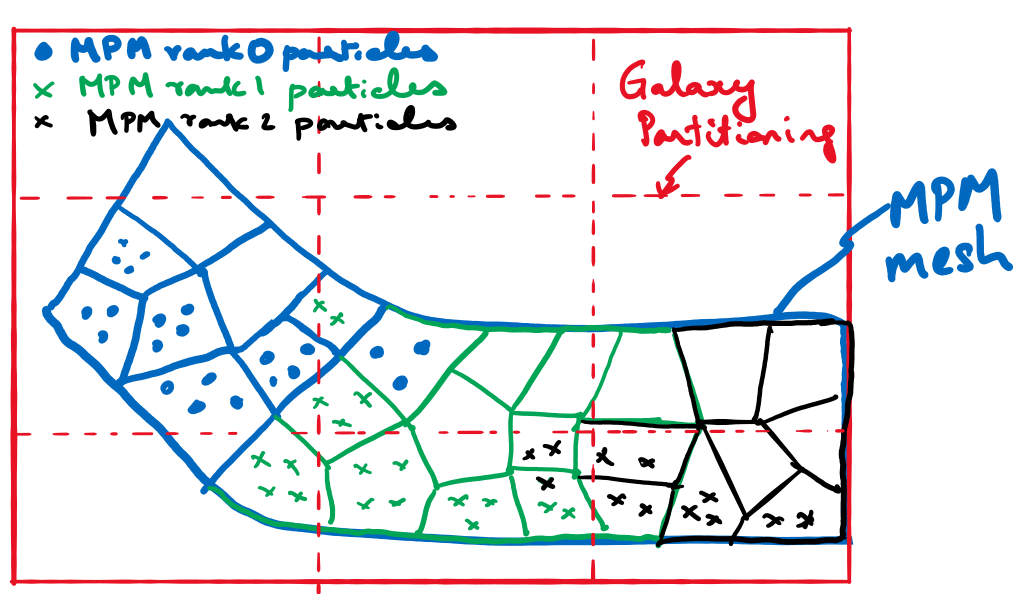 MPM rank 0 particles
MPM rank 1 particles
MPM rank 2 particles
Galaxy
Partitioning
MPM
mesh